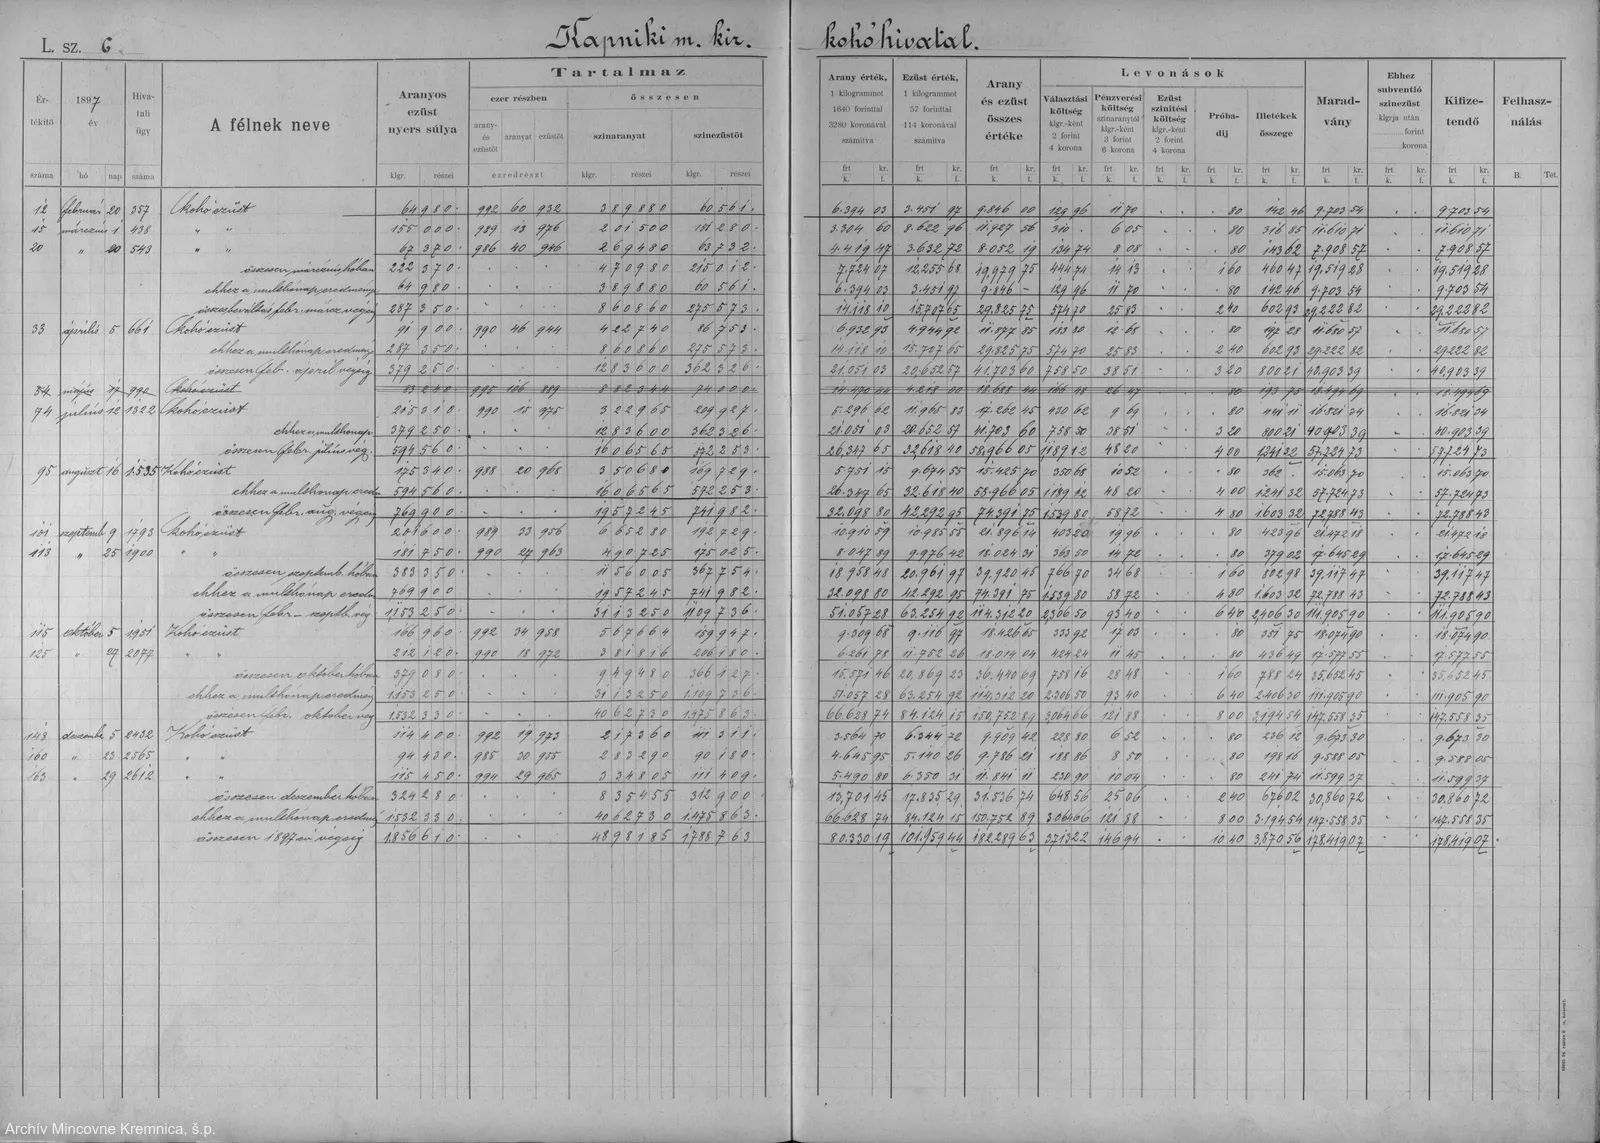 L. sz. 6.
Kapniki m. kir. kohóhivatal.
Ér-
tékítő
száma
1897
év
hó nap
Hiva-
tali
ügy
száma
A félnek neve
Aranyos
ezüst
nyers súlya
klgr. részei
Tartalmaz
ezer részben
arany-
és
ezüstöt
aranyat
ezüstöt
ezredrészt
összesen
szinaranyat
klgr. részei
szinezüstöt
klgr. részei
Arany érték,
1 kilogrammot
1640 forinttal
3280 koronával
számítva
frt kr.
k. f.
Ezüst érték,
1 kilogrammot
57 forinttal
114 koronával
számítva
frt kr.
k. f.
Arany
és ezüst
összes
értéke
frt kr.
k. f.
Levonások
Választási
költség
klgr.-ként
2 forint
4 korona
frt kr.
k. f.
Pénzverési
költség
szinaranytól
klgr.-ként
3 forint
6 korona
frt kr.
k. f.
Ezüst
szinitési
költség
klgr.-ként
2 forint
4 korona
frt kr.
k. f.
Próba-
díj
frt kr.
k. f.
Illetékek
összege
frt kr.
k. f.
Marad-
vány
frt kr.
k. f.
Ehhez
subventió
szinezüst
klgrja után
forint
korona
frt kr.
k. f.
Kifize-
tendő
frt kr.
k. f.
Felhasz-
nálás
B. Tét.
12 február 20 357 Kohóezüst 64 980 992 60 932 3 89880 60 561 6.394 03 3.451 97 9.846 00 129 96 11 70 80 142 46 9.703 54 9.703 54
15 márczius 1 438 " " 155 000 989 13 976 2 01500 151 280 3.304 60 8.622 96 11.927 56 310 6 05 80 316 85 11.610 71 11.610 71
20 " 20 543 " " 67 370 986 40 946 2 69480 63 732 4.419 47 3.632 72 8.052 19 134 74 8 08 80 143 62 7.908 57 7.908 57
összesen márczius hóban 222 370 4 70980 215 012 7.724 07 12.255 68 19.979 75 444 74 14 13 1 60 460 47 19.519 28 19.519 28
ehhez a multhónap eredménye 64 980 3 89880 60 561 6.394 03 3.451 97 9.846 – 129 96 11 70 80 142 46 9.703 54 9.703 54
287 350 8 60860 275 573 14.118 10 15.707 65 29.825 75 574 70 25 83 2 40 602 93 29.222 82 29.222 82
33 április 5 661 Kohóezüst 91 900 990 46 944 4 22740 86 753 6.932 93 4.944 92 11.877 85 183 80 12 68 80 197 28 11.680 57 11.680 57
ehhez a multhónap eredmény 287 350 8 60860 275 573 14.118 10 15.707 65 29.825 75 574 70 25 83 2 40 602 93 29.222 82 29.222 82
összesen feb. april végéig 379 250 12 83600 362 326 21.051 03 20.652 57 41.703 60 758 50 38 51 3 20 800 21 40.903 39 40.903 39
54 május 17 992 Kohóezüst 83 248 995 106 889 8 82344 74 000
74 július 12 1322 Kohóezüst 215 310 990 15 975 3 22965 209 927 5.296 62 11.965 83 17.262 45 430 62 9 69 80 441 11 16.821 34 16.821 34
ehhez a multhónap 379 250 12 83600 362 326 21.051 03 20.652 57 41.703 60 758 50 38 51 3 20 800 21 40.903 39 40.903 39
összesen febr. július vég. 594 560 16 06565 572 253 26.347 65 32.618 40 58.966 05 1189 12 48 20 4 00 1241 32 57.724 73 57.724 73
95 auguszt 16 1.535 Kohóezüst 175 340 988 20 968 3 50680 169 729 5.751 15 9.674 55 15.425 70 350 68 10 52 80 362 – 15.063 70 15.063 70
ehhez a multhónap eredm 594 560 16 06565 572 253 26.347 65 32.618 40 58.966 05 1.189 12 48 20 4 00 1241 32 57.724 73 57.724 73
összesen febr. aug. végéig 769 900 19 57245 741 982 32.098 80 42.292 95 74.391 75 1.539 80 58 72 4 80 1.603 32 72.788 43 72.788 43
101 szeptemb 9 1793 Kohóezüst 201 600 989 33 956 6 65280 192 729 10.910 59 10.985 55 21.896 14 403 20 19 96 80 423 96 21.472 18 21.472 18
113 " 25 1900 " " 181 750 990 27 963 4 90725 175 025 8.047 89 9.976 42 18.024 31 363 50 14 72 80 379 02 17.645 29 17.645 29
összesen szeptemb. hóban 383 350 11 56005 367 754 18.958 48 20.961 97 39.920 45 766 70 34 68 1 60 802 98 39.117 47 39.117 47
ehhez a multhónap eredm 769 900 19 57245 741 982 32.098 80 42.292 95 74.391 75 1.539 80 58 72 4 80 1.603 32 72.788 43 72.788 43
összesen febr – szeptb. vég 1.153 250 31 13250 1.109 736 51.057 28 63.254 92 114.312 20 2.306 50 93 40 6 40 2.406 30 111.905 90 111.905 90
115 október 5 1951 Kohóezüst 166 960 992 34 958 5 67664 159 947 9.309 68 9.116 97 18.426 65 333 92 17 03 80 351 75 18.074 90 18.074 90
125 " 27 2077 " " 212 120 990 18 972 3 81816 206 180 6.261 78 11.752 26 18.014 04 424 24 11 45 80 436 49 17.577 55 17.577 55
összesen október hóban 379 080 9 49480 366 127 15.571 46 20.869 23 36.440 69 758 16 28 48 1 60 788 24 35.652 45 35.652 45
ehhez a multhónap eredmény 1.153 250 31 13250 1.109 736 51.057 28 63.254 92 114.312 20 2.306 50 93 40 6 40 2.406 30 111.905 90 111.905 90
összesen febr. október vég 1.532 330 40 62730 1.475 863 66.628 74 84.124 15 150.752 89 3.064 66 121 88 8 00 3.194 54 147.558 35 147.558 35
148 deczembe 5 2432 Kohóezüst 114 400 992 19 973 2 17360 111 311 3.564 70 6.344 72 9.909 42 228 80 6 52 80 236 12 9.673 30 9.673 30
160 " 23 2565 " " 94 430 985 30 955 2 83290 90 180 4.645 95 5.140 26 9.786 21 188 86 8 50 80 198 16 9.588 05 9.588 05
163 " 29 2612 " " 115 450 994 29 965 3 34805 111 409 5.490 80 6.350 31 11.841 11 230 90 10 04 80 241 74 11.599 37 11.599 37
összesen deczember hóban 324 280 8 35455 312 900 13.701 45 17.835 29 31.536 74 648 56 25 06 2 40 676 02 30.860 72 30.860 72
ehhez a multhónap eredmény 1.532 330 40 62730 1.475 863 66.628 74 84.124 15 150.752 89 3.064 66 121 88 8 00 3.194 54 147.558 35 147.558 35
összesen 1897 évi végéig 1.856 610 48 98185 1788 763 80.330 19 101.959 44 182.289 63 3.713 22 146 94 10 40 3.870 56 178.419 07 178.419 07
Archív Mincovne Kremnica, š.p.